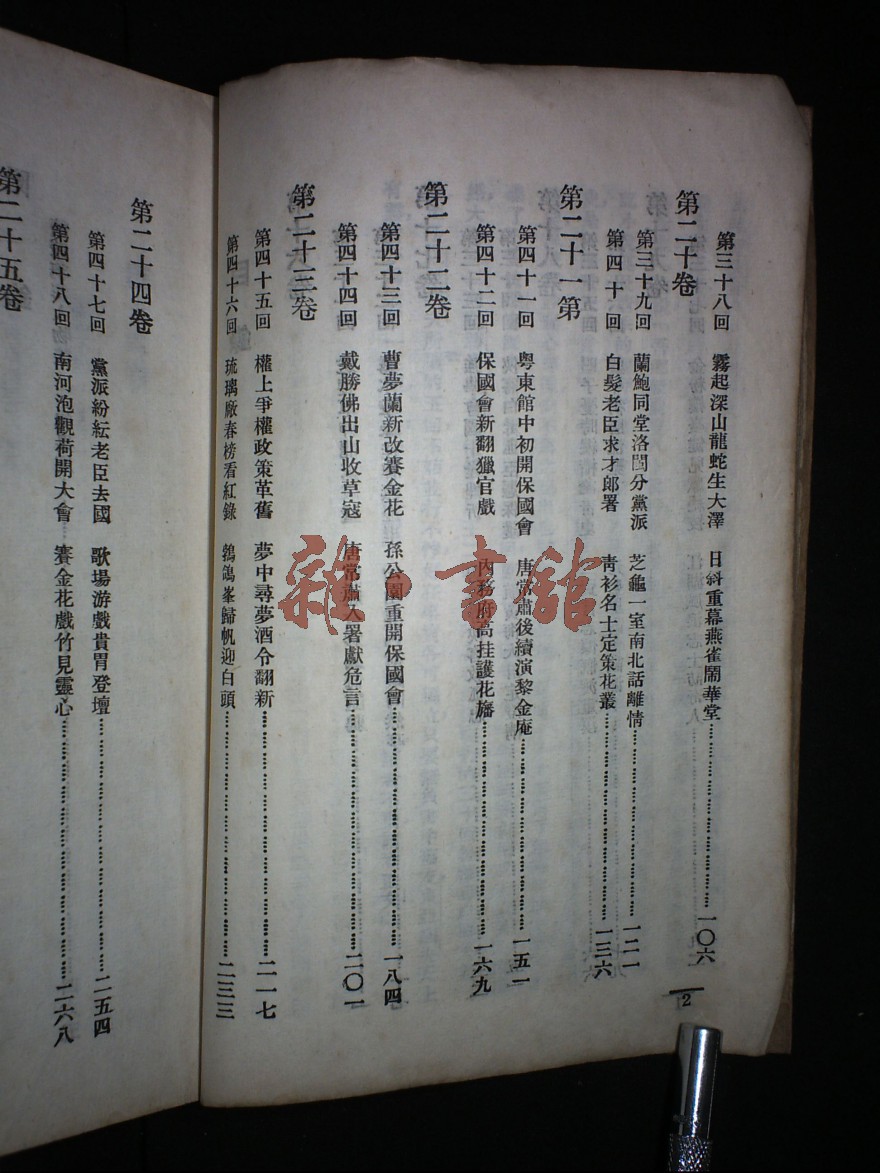 第三十八回 霧起深山龍蛇生大澤 日斜重幕燕雀鬧華堂 一〇六
第二十卷
第三十九回 蘭鮑同堂洛閩分黨派 芝龜一室南北話離情 一二一
第四十回 白髮老臣求才郎署 靑衫名士定策花叢 一三六
第二十一第
第四十一回 粵東館中初開保國會 唐常肅後續演黎金庵 一五一
第四十二回 保國會新翻獵官戲 內務府高挂護花旛 一六九
第二十二卷
第四十三回 曹夢蘭新改賽金花 孫公園重開保國會 一八四
第四十四回 戴勝佛出山收草寇 唐常肅入署獻危言 二〇一
第二十三卷
第四十五回 權上爭權政策革舊 夢中尋夢酒令翻新 二一七
第四十六回 琉璃廠春榜看紅錄 鶺鴒峯歸帆迎白頭 二三三
2
第二十四卷
第四十七回 黨派紛紜老臣去國 歌場游戲貴胄登壇 二五四
第四十八回 南河泡觀荷開大會 賽金花戲竹見靈心 二六八
第二十五卷
雜·書館